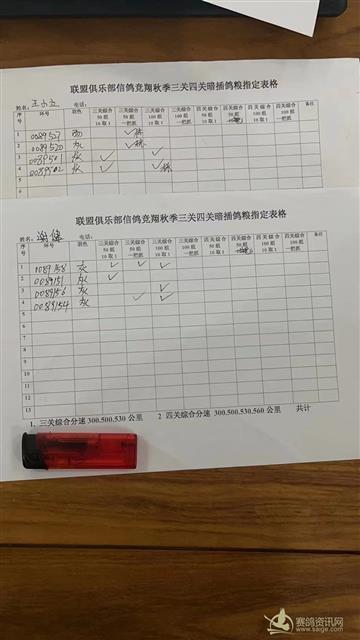 联盟俱乐部信鸽竞翔秋季三关四关暗插鸽粮指定表格
姓名: 电话:
序号 环号 羽色 三关综合50组10取1 三关综合50组一把抓 三关综合100组10取1 三关综合100组一把抓 四关综合50组10取1 四关综合50组 四关综合100组10取1 四关综合100组一把抓 备注
1 0089527 ✓
2 0089520 灰 ✓
3 ✓ ✓
4 ✓ ✓
5
联盟俱乐部信鸽竞翔秋季三关四关暗插鸽粮指定表格
姓名: 谢健 电话:
序号 环号 羽色 三关综合50组10取1 三关综合50组一把抓 三关综合100组10取1 三关综合100组一把抓 四关综合50组10取1 四关综合50组 四关综合100组10取1 四关综合100组一把抓 备注
1 0089158 灰 ✓ ✓ ✓
2 0089151 灰 ✓
3 0089156 灰 ✓
4 0089154 灰 ✓ ✓
5
6
7
8
9
10
11
12
13
1、三关综合分速 300.500.530 公里 2 四关综合分速 300.500.530.560 公里 共计
赛鸽资讯网
www.saige.com